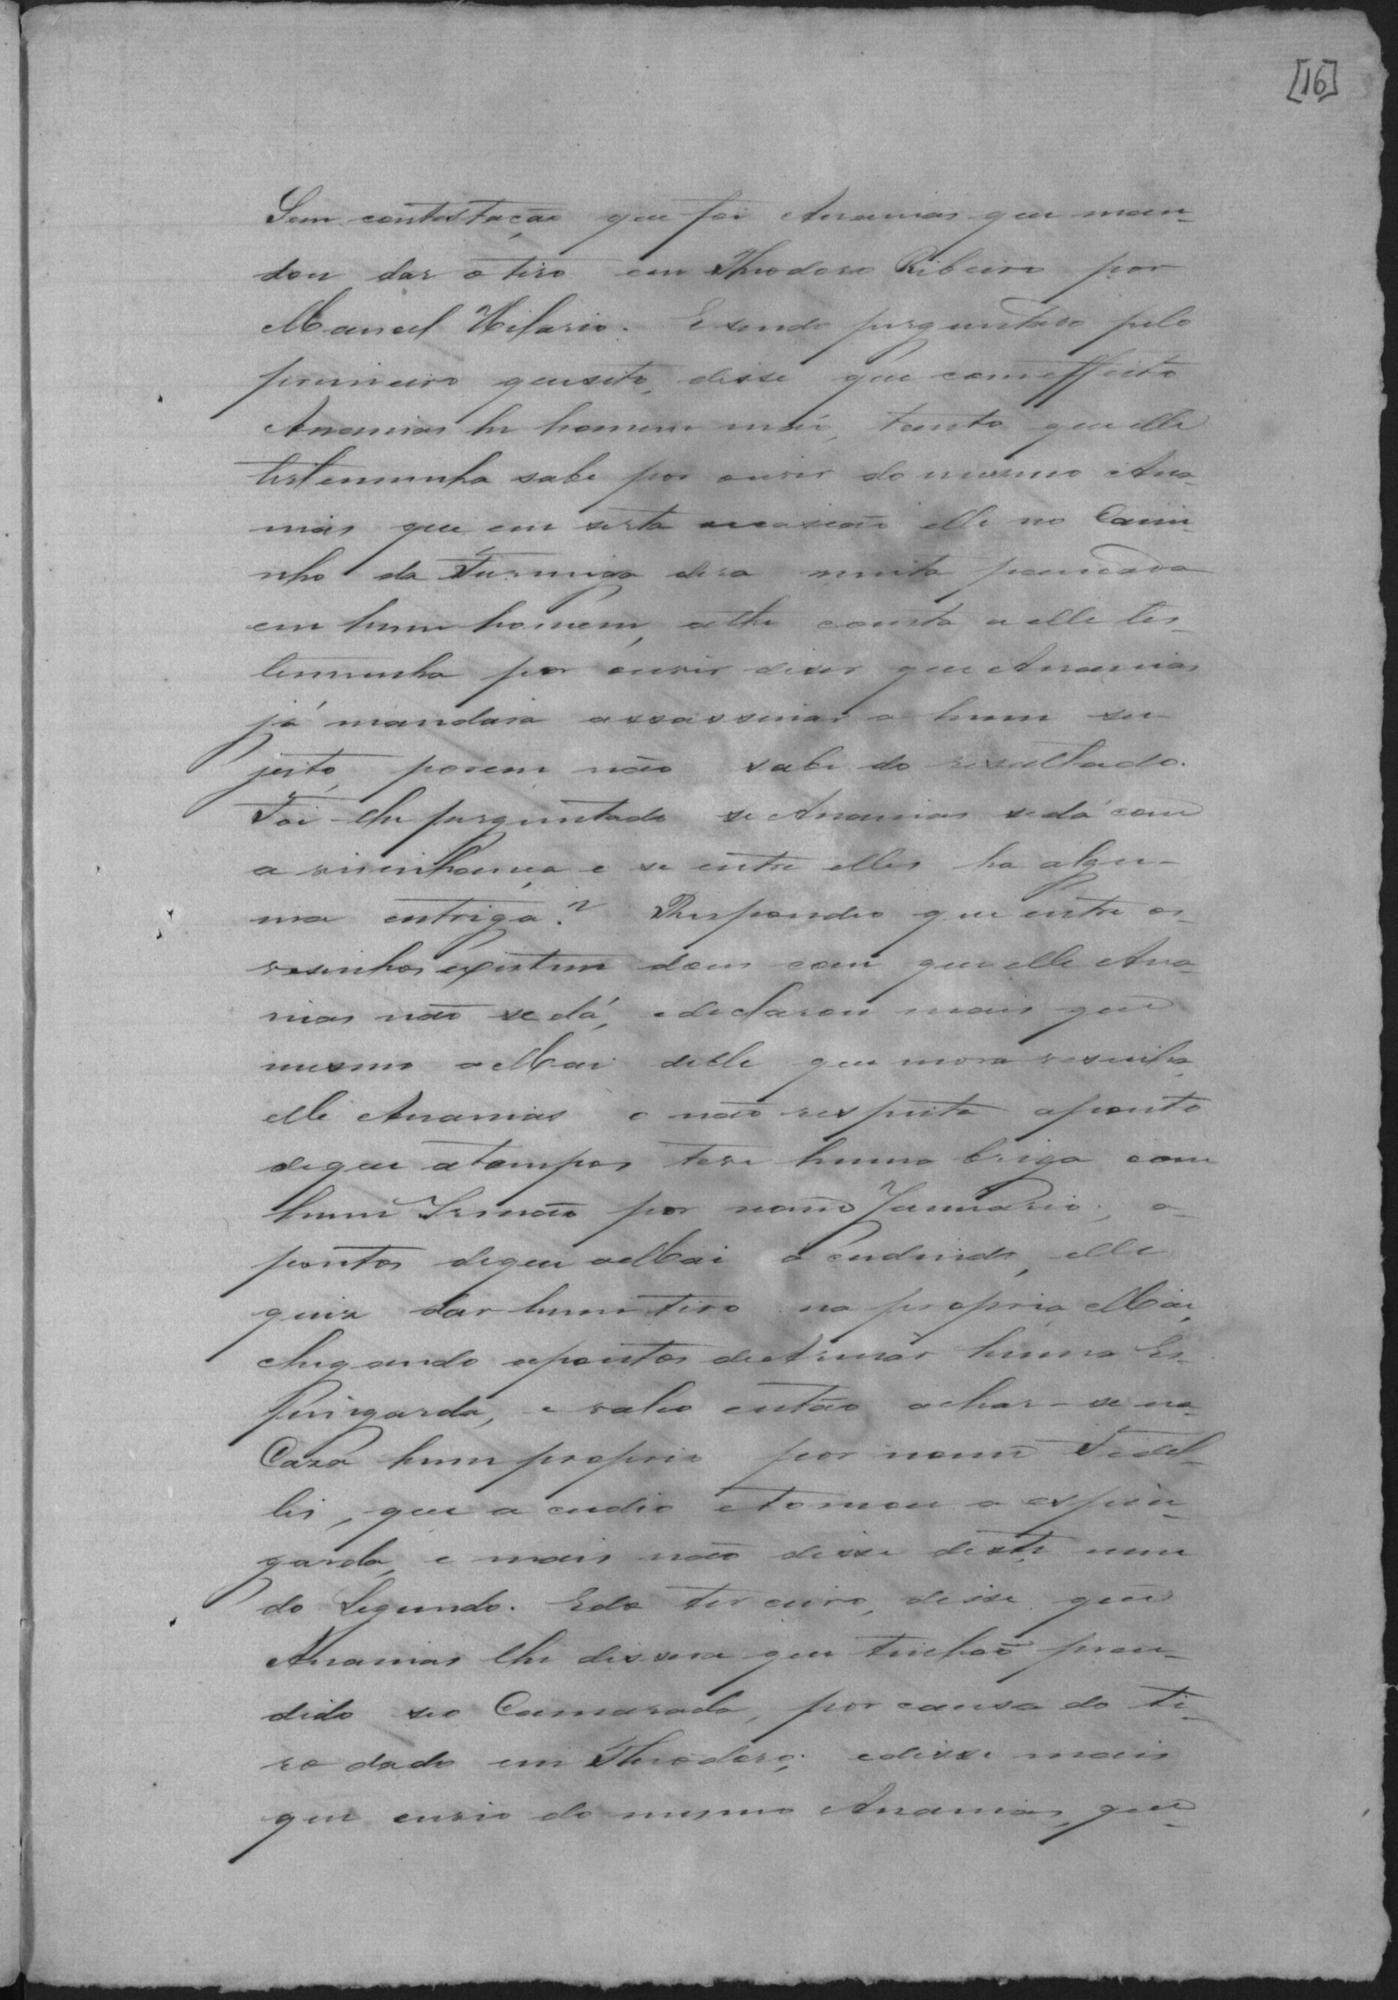 [16]
Sem contestação que foi Ananias que man-
dou dar o tiro em Theodoro Ribeiro por
Manoel Hilario. E sendo perguntado pelo
primeiro quesito, disse que com effeito
Ananias he homem máo, tanto que elle
testemunha sabe por ouvir do mesmo Ana-
nias que em serta ocasião elle no Cami-
nho da Furmiga dera muita pancada
em hum homem, e lhe consta a elle tes-
temunha por ouvir diser que Ananias
já mandara assassinar a hum su-
jeito, porem não sabe do resultado.
Foi-lhe perguntado se Ananias se dá com
a visinhança e se entre elles ha algu-
ma entriga? Respondeo que entre os
vesinhos existem dous com que elle Ana-
nias não se dá, e declarou mais que
mesmo a Mai delle que mora vesinha
elle Ananias a não respeita aponto
de que a tempos teve huma briga com
hum Irmão por nome Januario, a-
pontos de que a Mai acudindo, elle
quis dar hum tiro na propria Mai,
chegando apontos de armar huma Es-
pingarda, e valeo então achar-se na
Caza hum proprio por nome Fidel-
lis, que acudio e tomou a espin-
garda, e mais não disse deste nem
do Segundo. E do terceiro, disse que
Ananias lhe dissera que tinhão pren-
dido seo Camarada, por causa do ti-
ro dado em Theodoro; e disse mais
que ouvio do mesmo Ananias, que